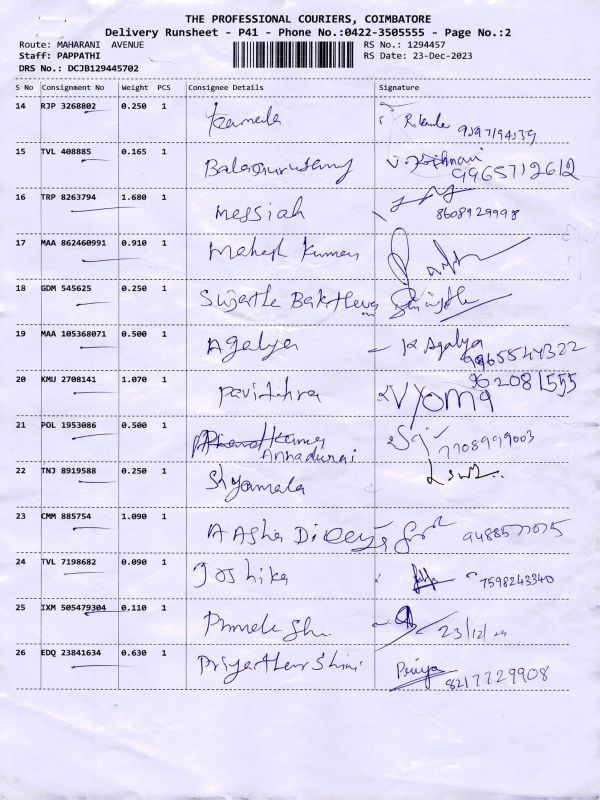 THE PROFESSIONAL COURIERS, COIMBATORE
Delivery Runsheet - P41 - Phone No.:0422-3505555 - Page No.:2
Route: MAHARANI AVENUE RS No.: 1294457
Staff: PAPPATHI RS Date: 23-Dec-2023
DRS No.: DCJB129445702
S No Consignment No Weight PCS Consignee Details Signature
14 RJP 3268802 0.250 1 Kamala
15 TVL 408885 0.165 1 9965712612
16 TRP 8263794 1.680 1 messiah 8608929998
17 MAA 862460991 0.910 1 Mahesh Kumar
18 GDM 545625 0.250 1
19 MAA 105368071 0.500 1 Agalya K Agalya
9965544322
20 KMU 2708141 1.070 1 Pavithra Vyoma
21 POL 1953086 0.500 1 7708999003
Annadurai
22 TNJ 8919588 0.250 1 Shyamala
23 CMM 885754 1.090 1 A Asha
24 TVL 7198682 0.090 1 Joshika 7598243340
25 IXM 505479304 0.110 1 23/12/
26 EDQ 23841634 0.630 1 Priyadharshini Priya
8217729908